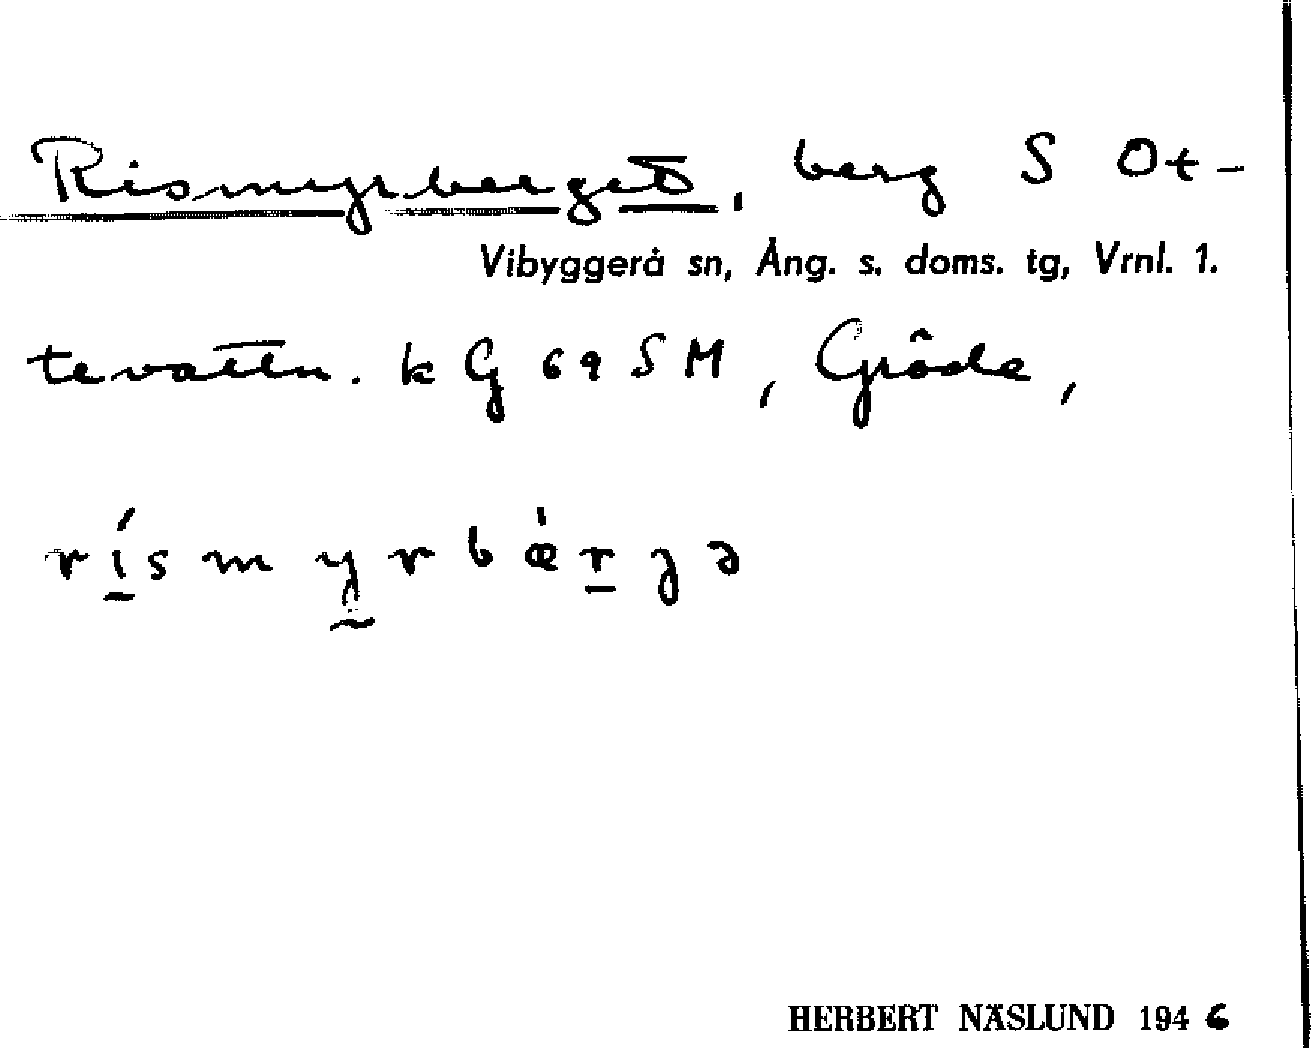 Rismyrberget, berg S Ot-
Vibyggerå sn, Ång. s. doms. tg, Vrnl. 1.
tevattn. k G 69 S M, Gröde,
rísmyrbærgə
HERBERT NÄSLUND 1946